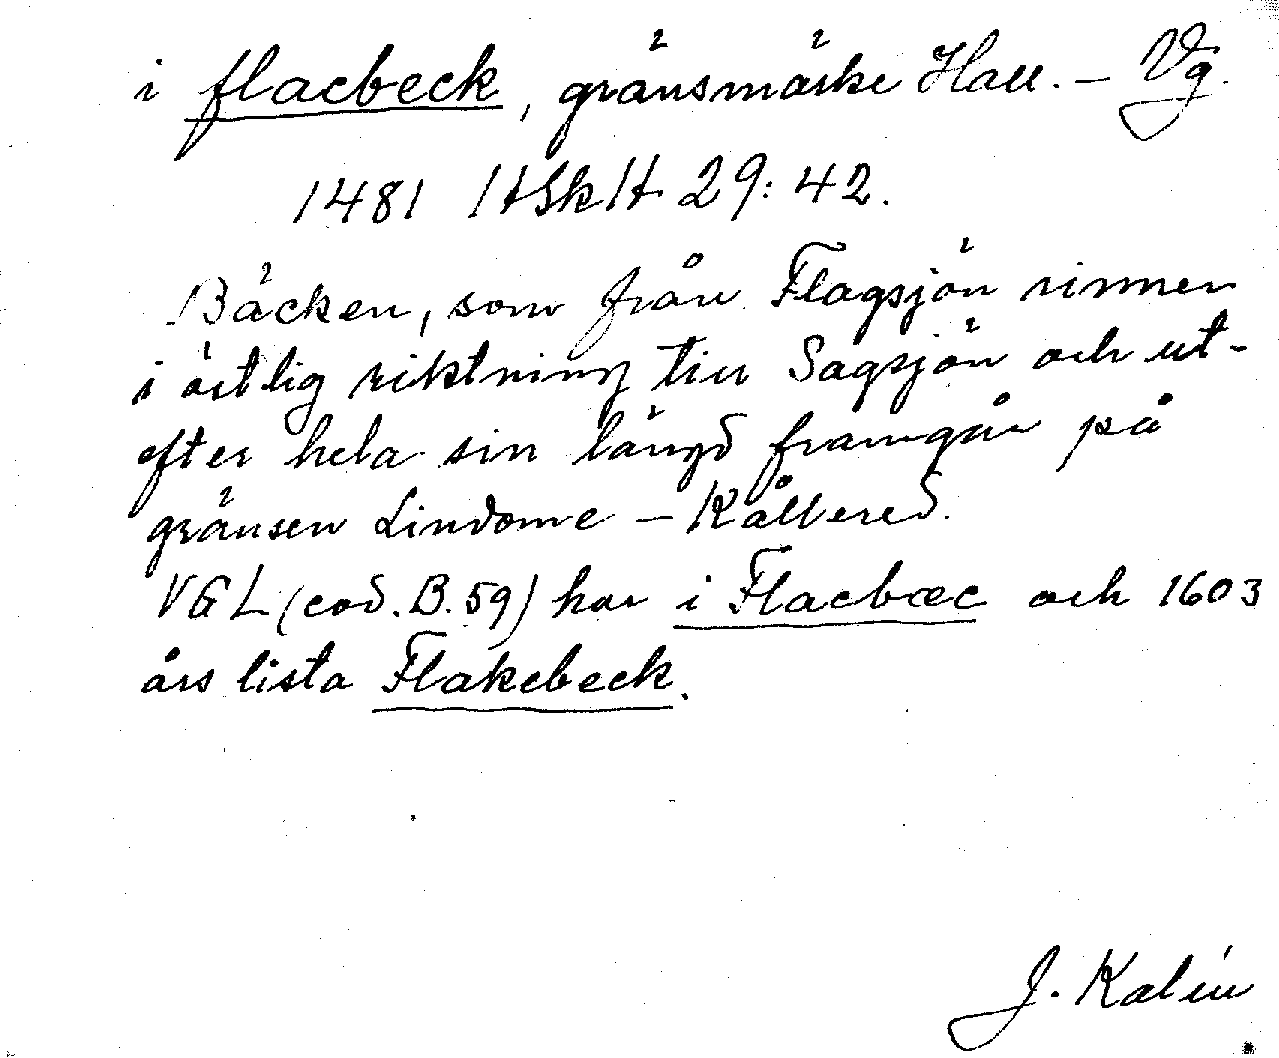 i flacbeck, gränsmärke Hall. – Vg.
1481 HSkH 29:42.
Bäcken, som från Flagsjön rinner
i östlig riktning till Sagsjön och ut-
efter hela sin längd framgår på
gränsen Lindome – Kållered.
VGL (cod. B. 59) har i Flacbæc och 1603
års lista Flakebeck.
J. Kalén